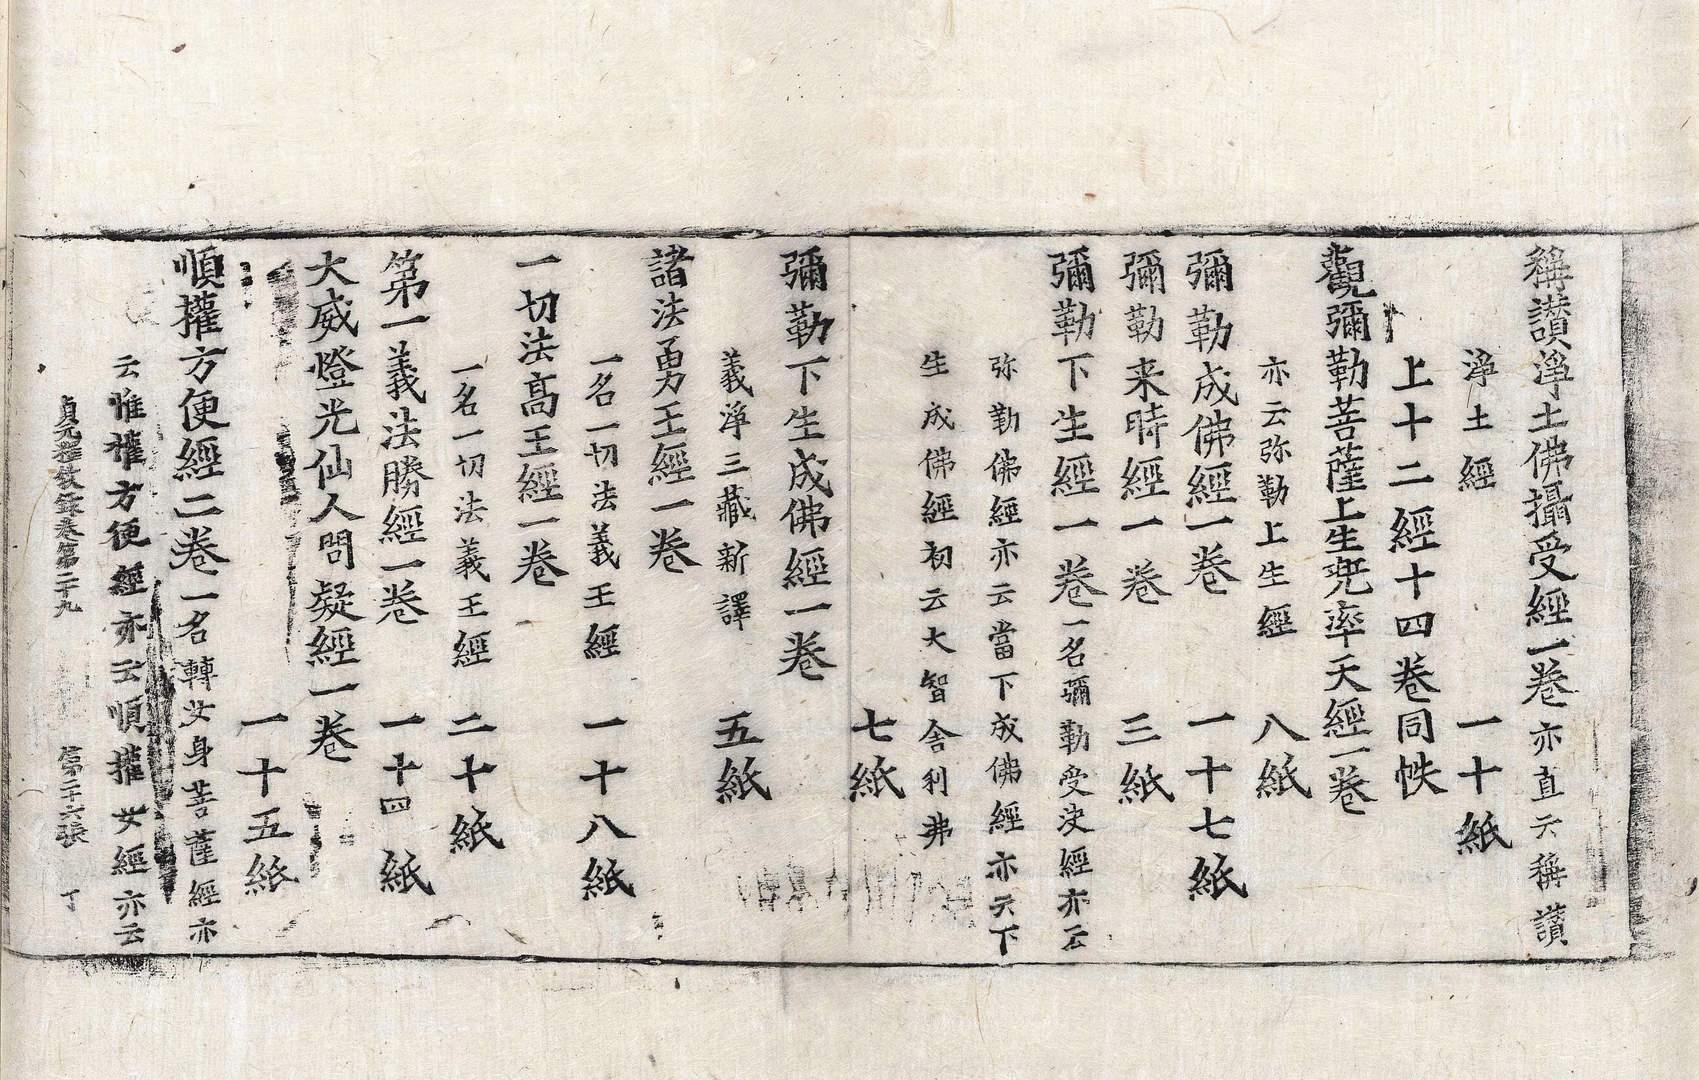 稱讃淨土佛攝受經一卷亦直云稱讃
淨土經 一十紙
上十二經十四卷同帙
觀彌勒菩薩上生兜率天經一卷
亦云弥勒上生經 八紙
彌勒成佛經一卷 一十七紙
彌勒来時經一卷 三紙
彌勒下生經一卷一名彌勒受决經亦云
弥勒佛經亦云當下成佛經亦云下
生成佛經初云大智舍利弗
七紙
彌勒下生成佛經一卷
義淨三藏新譯 五紙
諸法勇王經一卷
一名一切法義王經 一十八紙
一切法高王經一卷
一名一切法義王經 二十紙
第一義法勝經一卷 一十四紙
大威燈光仙人問疑經一卷
一十五紙
順權方便經二卷一名轉女身菩薩經亦
云惟權方便經亦云順權女經亦云
貞元釋教録卷第二十九 第二十六張 丁